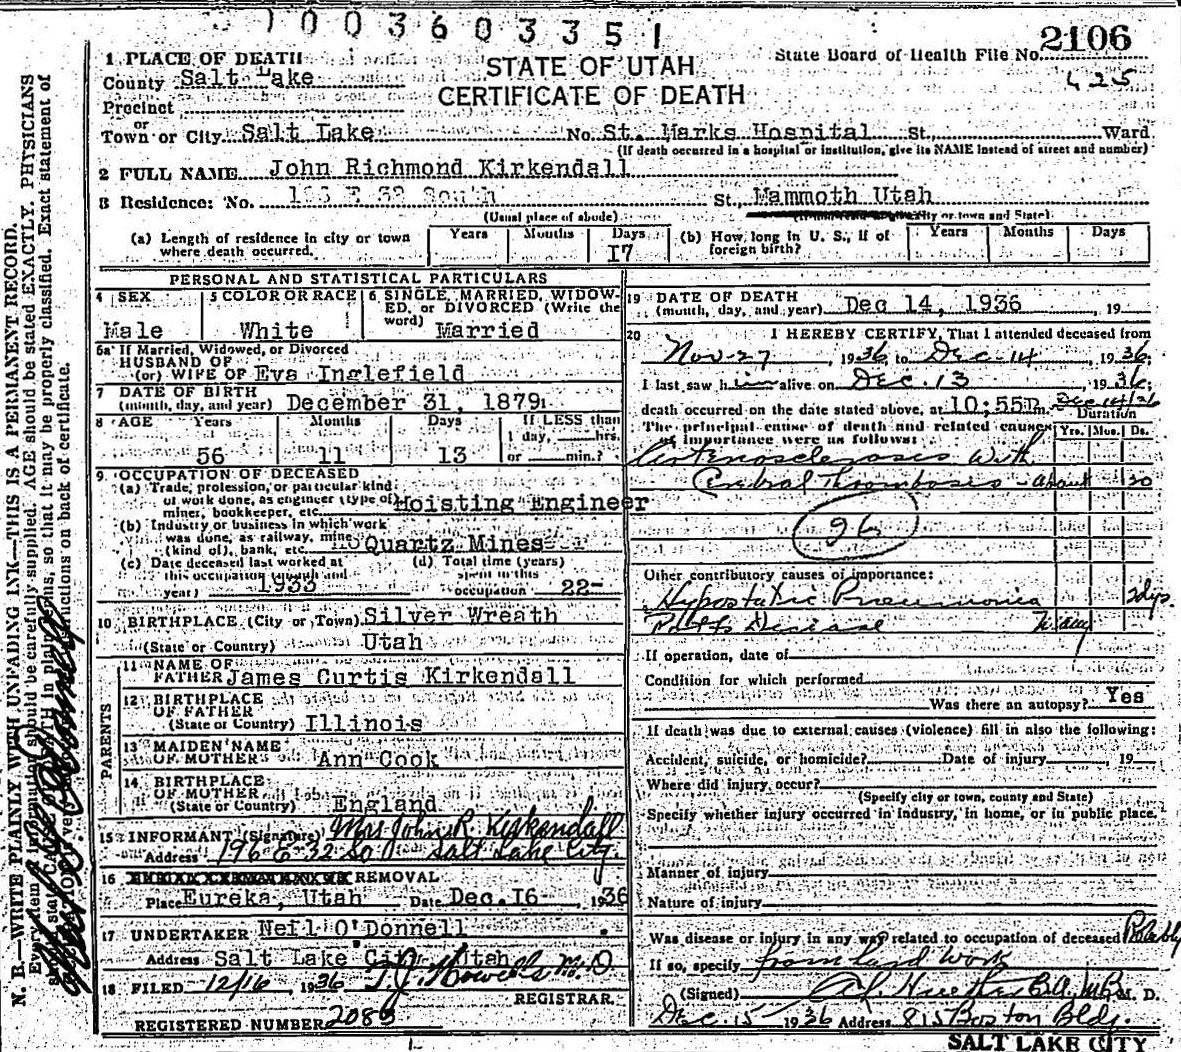 1003603351
2106
State Board of Health File No.
425
1 PLACE OF DEATH
County Salt Lake
STATE OF UTAH
CERTIFICATE OF DEATH
Precinct
or
Town or City Salt Lake No. St. Marks Hospital St. Ward
(If death occurred in a hospital or institution, give its NAME instead of street and number)
2 FULL NAME John Richmond Kirkendall
3 Residence: No. E 32 South St., Mammoth Utah
(Usual place of abode) city or town and State)
(a) Length of residence in city or town where death occurred. Years Months Days 17
(b) How long in U. S., if of foreign birth? Years Months Days
PERSONAL AND STATISTICAL PARTICULARS
4 SEX Male
5 COLOR OR RACE White
6 SINGLE, MARRIED, WIDOWED, or DIVORCED (Write the word) Married
6a If Married, Widowed, or Divorced
HUSBAND OF
(or) WIFE OF Eva Inglefield
7 DATE OF BIRTH
(month, day, and year) December 31, 1879
8 AGE Years Months Days If LESS than
1 day, hrs.
56 11 13 or min.?
9 OCCUPATION OF DECEASED
(a) Trade, profession, or particular kind
of work done, as engineer (type of)
miner, bookkeeper, etc. Hoisting Engineer
(b) Industry or business in which work
was done, as railway, mine
(kind of), bank, etc. Quartz Mines
(c) Date deceased last worked at
this occupation (month and
year) 1933
(d) Total time (years)
spent in this
occupation 22-
10 BIRTHPLACE (City or Town) Silver Wreath
(State or Country) Utah
PARENTS
11 NAME OF
FATHER James Curtis Kirkendall
12 BIRTHPLACE
OF FATHER
(State or Country) Illinois
13 MAIDEN NAME
OF MOTHER Ann Cook
14 BIRTHPLACE
OF MOTHER
(State or Country) England
15 INFORMANT (Signature) Mrs John R. Kirkendall
Address 196 E 32 So Salt Lake City.
16 REMOVAL
Place Eureka, Utah Date Dec. 16 1936
17 UNDERTAKER Neil O'Donnell
Address Salt Lake City, Utah
18 FILED 12/16 1936 T. J. Howells M.D
REGISTRAR.
REGISTERED NUMBER 2083
19 DATE OF DEATH
(month, day, and year) Dec 14, 1936 19
20 I HEREBY CERTIFY, That I attended deceased from
Nov-27, 1936, to Dec-14, 1936,
I last saw him alive on Dec. 13, 1936;
death occurred on the date stated above, at 10;55 m. Dec 14/36
Duration
The principal cause of death and related causes
of importance were as follows: Yrs. Mos. Ds.
Arteriosclerosis with
Cerebral Thrombosis - about 20
96
Other contributory causes of importance:
Hypostatic Pneumonia 2 dys.
Potts Disease Many
If operation, date of
Condition for which performed
Was there an autopsy? Yes
If death was due to external causes (violence) fill in also the following:
Accident, suicide, or homicide? Date of injury, 19
Where did injury occur?
(Specify city or town, county and State)
Specify whether injury occurred in industry, in home, or in public place.
Manner of injury
Nature of injury
Was disease or injury in any way related to occupation of deceased Probably
If so, specify from hard work
(Signed) M. D.
Dec. 15 1936 Address 815 Boston Bldg.
SALT LAKE CITY
N. B.—WRITE PLAINLY WITH UNFADING INK—THIS IS A PERMANENT RECORD.
Every item of information should be carefully supplied. AGE should be stated EXACTLY. PHYSICIANS
should state CAUSE OF DEATH in plain terms, so that it may be properly classified. Exact statement of
OCCUPATION is very important. See instructions on back of certificate.